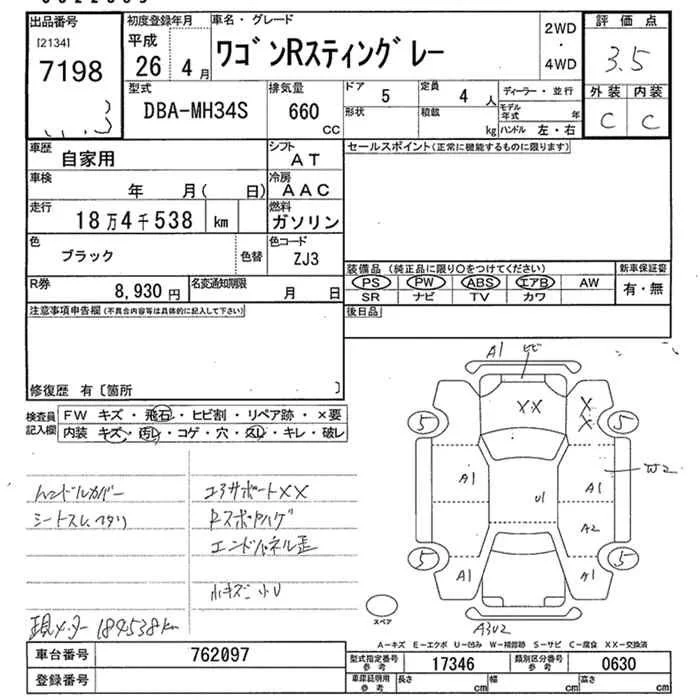 出品番号
[2134]
7198
初度登録年月
平成
26 4月
車名・グレード
ワゴンRスティングレー
2WD
・
4WD
評価点
3.5
外装 内装
C C
型式
DBA-MH34S
排気量
660
CC
ドア
5
定員
4 人
ディーラー・並行
形状
積載
kg
モデル年式 年
ハンドル 左・右
車歴
自家用
シフト
AT
セールスポイント(正常に機能するものに限ります)
車検
年 月( 日)
冷房
AAC
走行
18万4千538 km
燃料
ガソリン
色
ブラック
色替
色コード
ZJ3
装備品 (純正品に限り○をつけてください)
新車保証書
PS PW ABS エアB AW
有・無
SR ナビ TV カワ
R券
8,930円
名変通知期限
月 日
後日品
注意事項申告欄(不具合内容等は具体的に記入して下さい)
修復歴 有〔箇所 〕
検査員
記入欄
FW キズ・飛石・ヒビ割・リペア跡・×要
内装 キズ・汚れ・コゲ・穴・スレ・キレ・破レ
ハンドルカバー
シートスレ、ヘタリ
コアサポートXX
Rスポイラハゲ
エンドパネル歪
小キズ、小U
現メーター 184538km
A1
ヒビ
XX
X
X
5
5
A1
U1
A1
W2
A2
5
5
A1
ケ1
A3U2
スペア
A―キズ E―エクボ U―凹み W―補修跡 S―サビ C―腐食 XX―交換済
車台番号
762097
型式指定番号
参考
17346
類別区分番号
参考
0630
登録番号
車庫証明用
参考
長さ cm
幅 cm
高さ cm